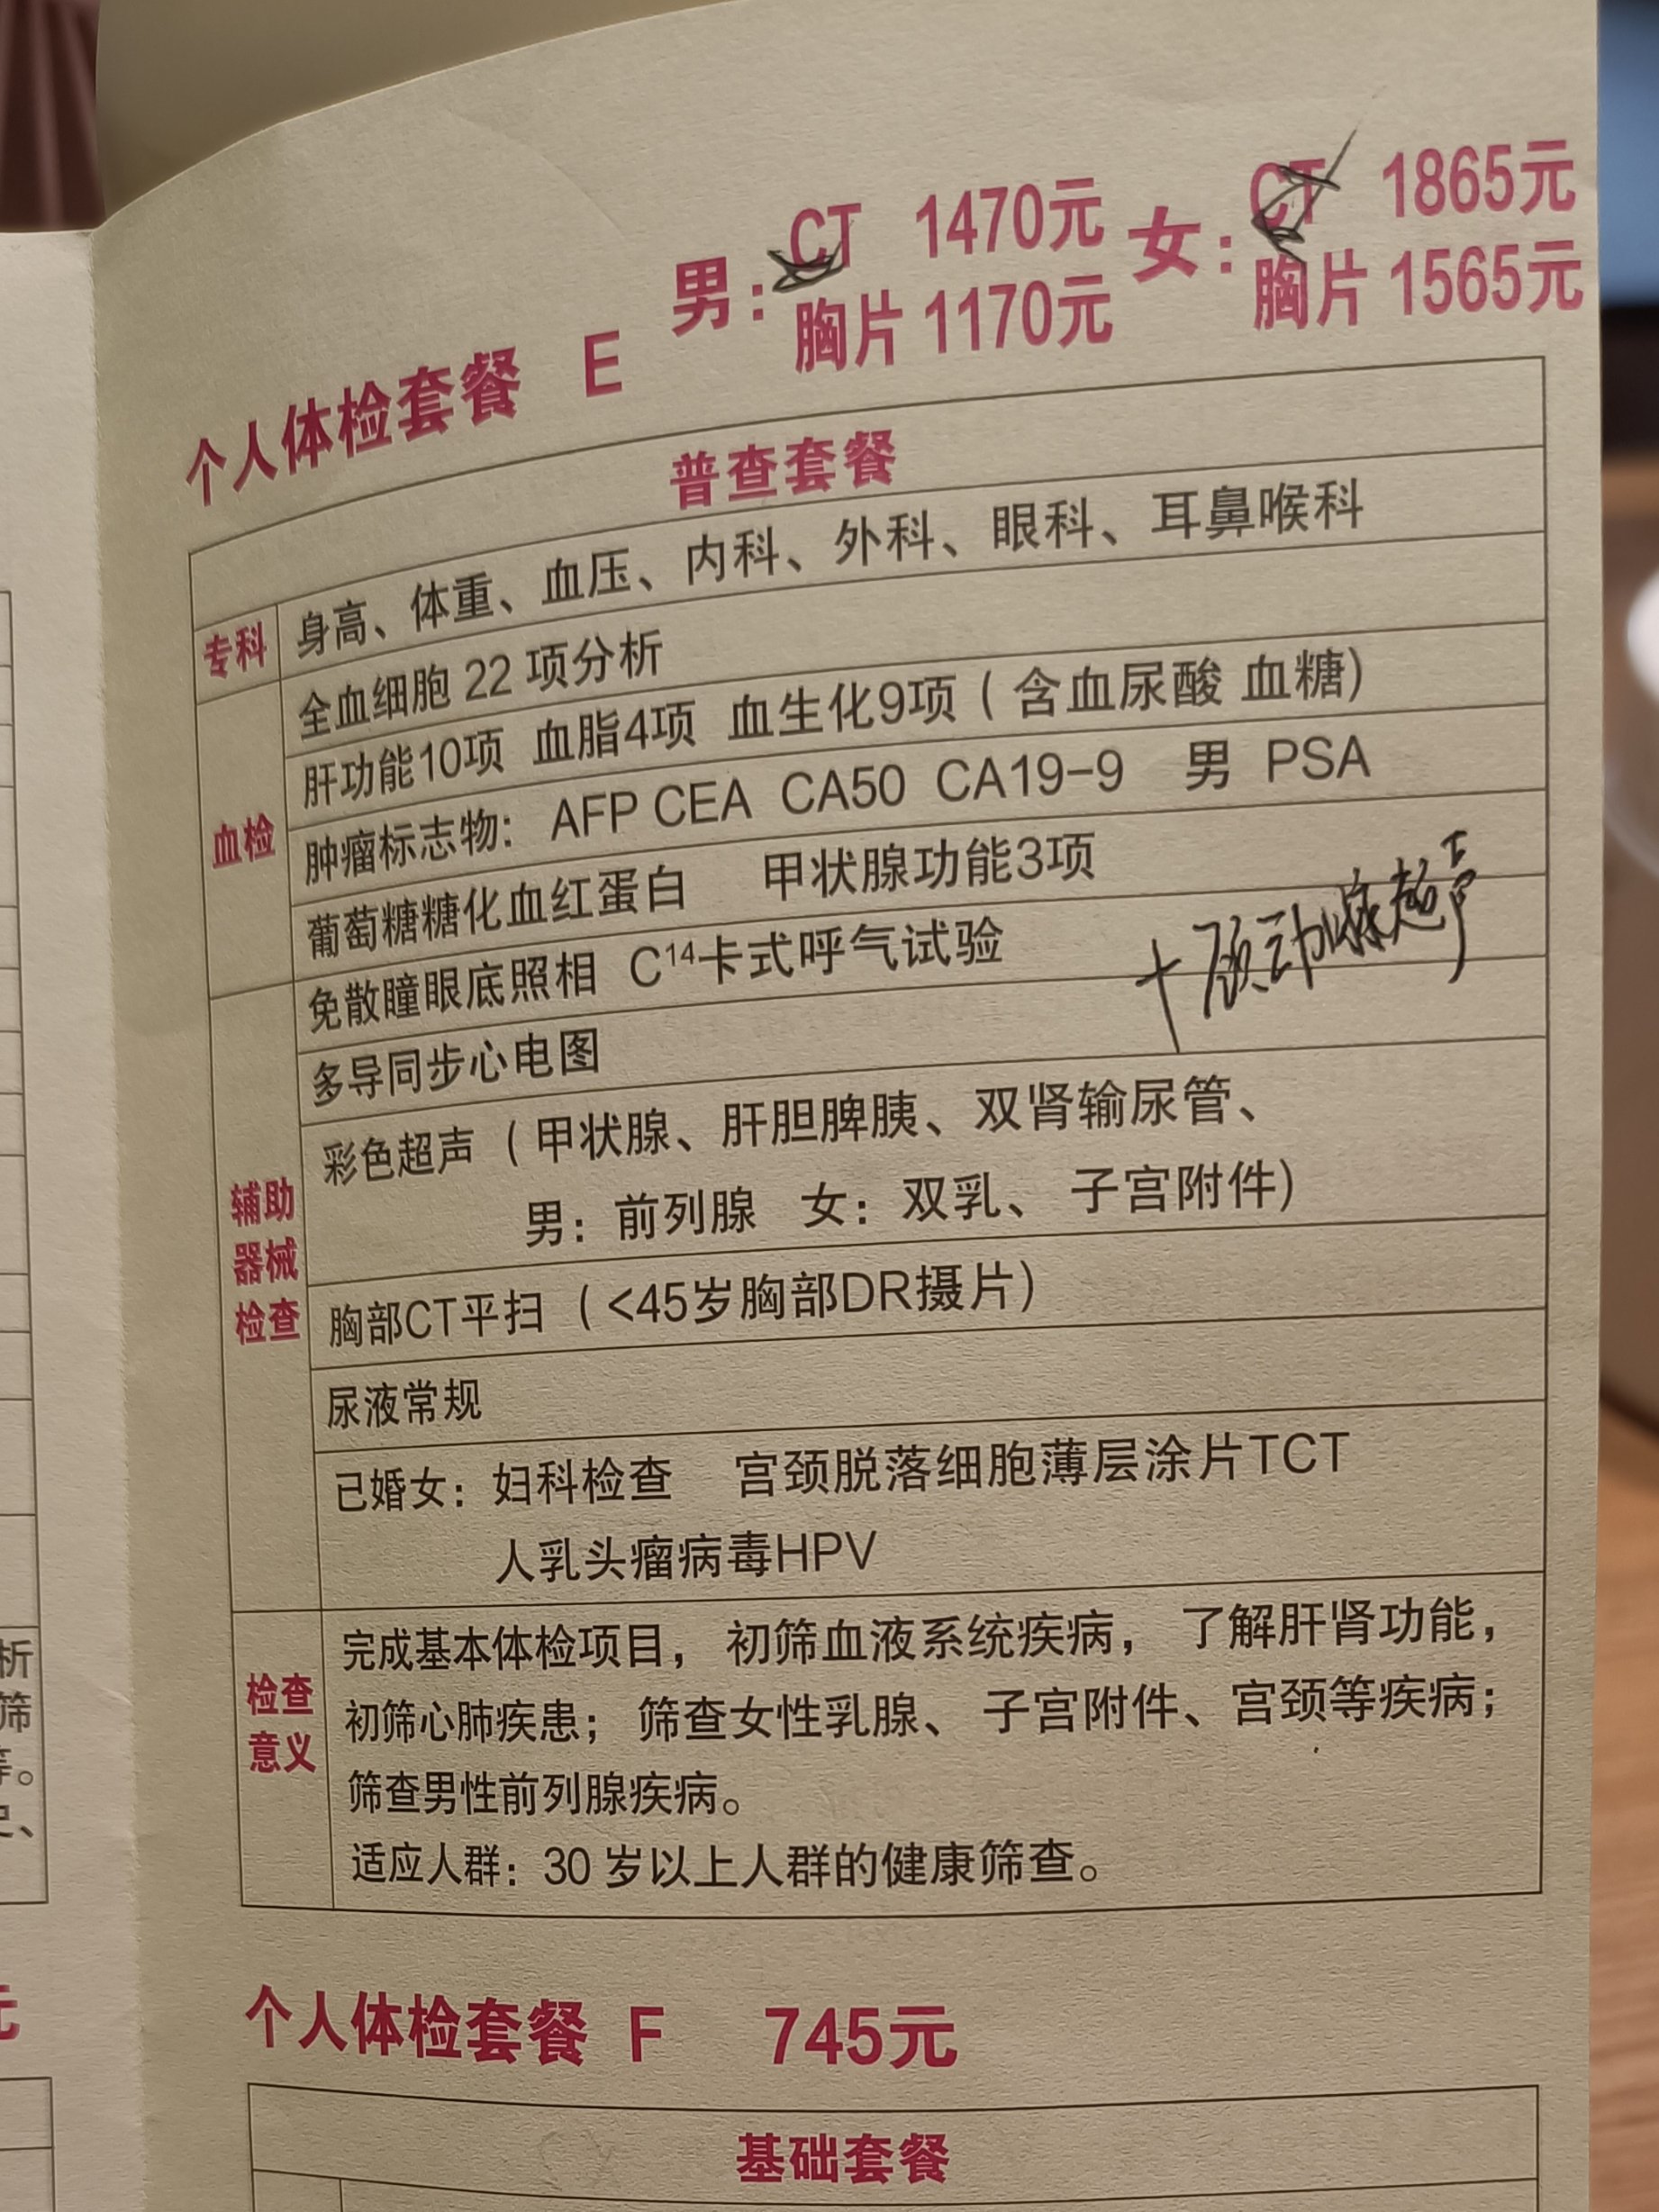 男：CT 1470元 女：CT 1865元
胸片 1170元 胸片 1565元
个人体检套餐 E
普查套餐
专科 身高、体重、血压、内科、外科、眼科、耳鼻喉科
血检
全血细胞 22 项分析
肝功能10项 血脂4项 血生化9项（含血尿酸 血糖）
肿瘤标志物： AFP CEA CA50 CA19-9 男 PSA
葡萄糖糖化血红蛋白 甲状腺功能3项
辅助
器械
检查
免散瞳眼底照相 C¹⁴卡式呼气试验
+颈动脉超声
多导同步心电图
彩色超声（甲状腺、肝胆脾胰、双肾输尿管、
男：前列腺 女：双乳、子宫附件）
胸部CT平扫（<45岁胸部DR摄片）
尿液常规
已婚女：妇科检查 宫颈脱落细胞薄层涂片TCT
人乳头瘤病毒HPV
检查
意义
完成基本体检项目，初筛血液系统疾病，了解肝肾功能，
初筛心肺疾患；筛查女性乳腺、子宫附件、宫颈等疾病；
筛查男性前列腺疾病。
适应人群：30 岁以上人群的健康筛查。
个人体检套餐 F 745元
基础套餐
析
筛
等。
元